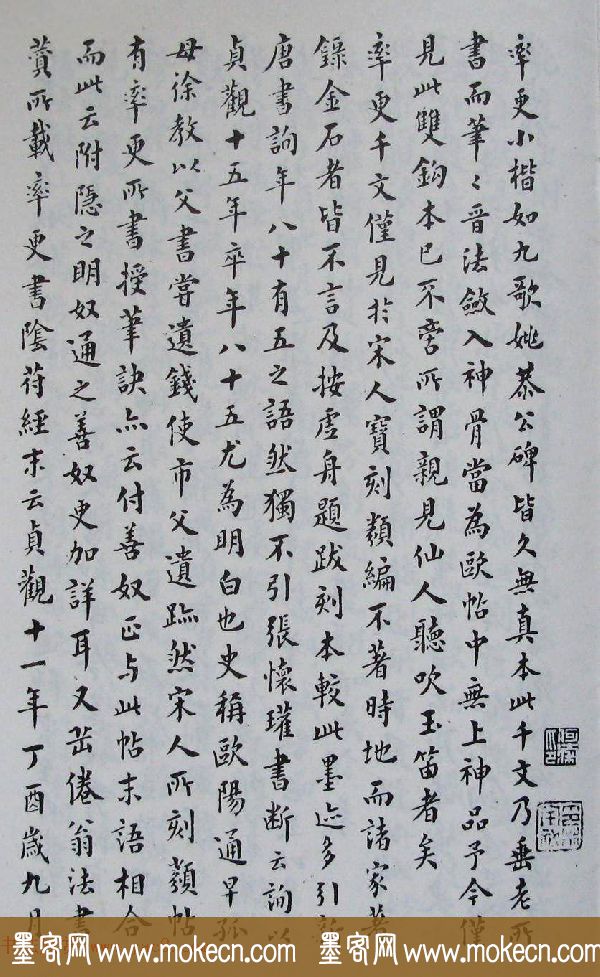 率更小楷如九歌姚恭公碑皆久無真本此千文乃垂老所
書而筆〻晉法斂入神骨當為歐帖中無上神品予今僅
見此雙鉤本已不啻所謂親見仙人聽吹玉笛者矣
率更千文僅見於宋人寶刻類編不著時地而諸家著
錄金石者皆不言及按虛舟題跋刻本較此墨迹多引新
唐書詢年八十有五之語然獨不引張懷瓘書斷云詢以
貞觀十五年卒年八十五尤為明白也史稱歐陽通早孤
母徐教以父書嘗遺錢使市父遺跡然宋人所刻蘱帖
有率更所書授筆訣亦云付善奴正与此帖末語相合
而此云附隱之明奴通之善奴更加詳耳又岳倦翁法書
贊所載率更書陰符經末云貞觀十一年丁酉歲九月
墨客网 www.mokecn.com 墨客网 www.mokecn.com